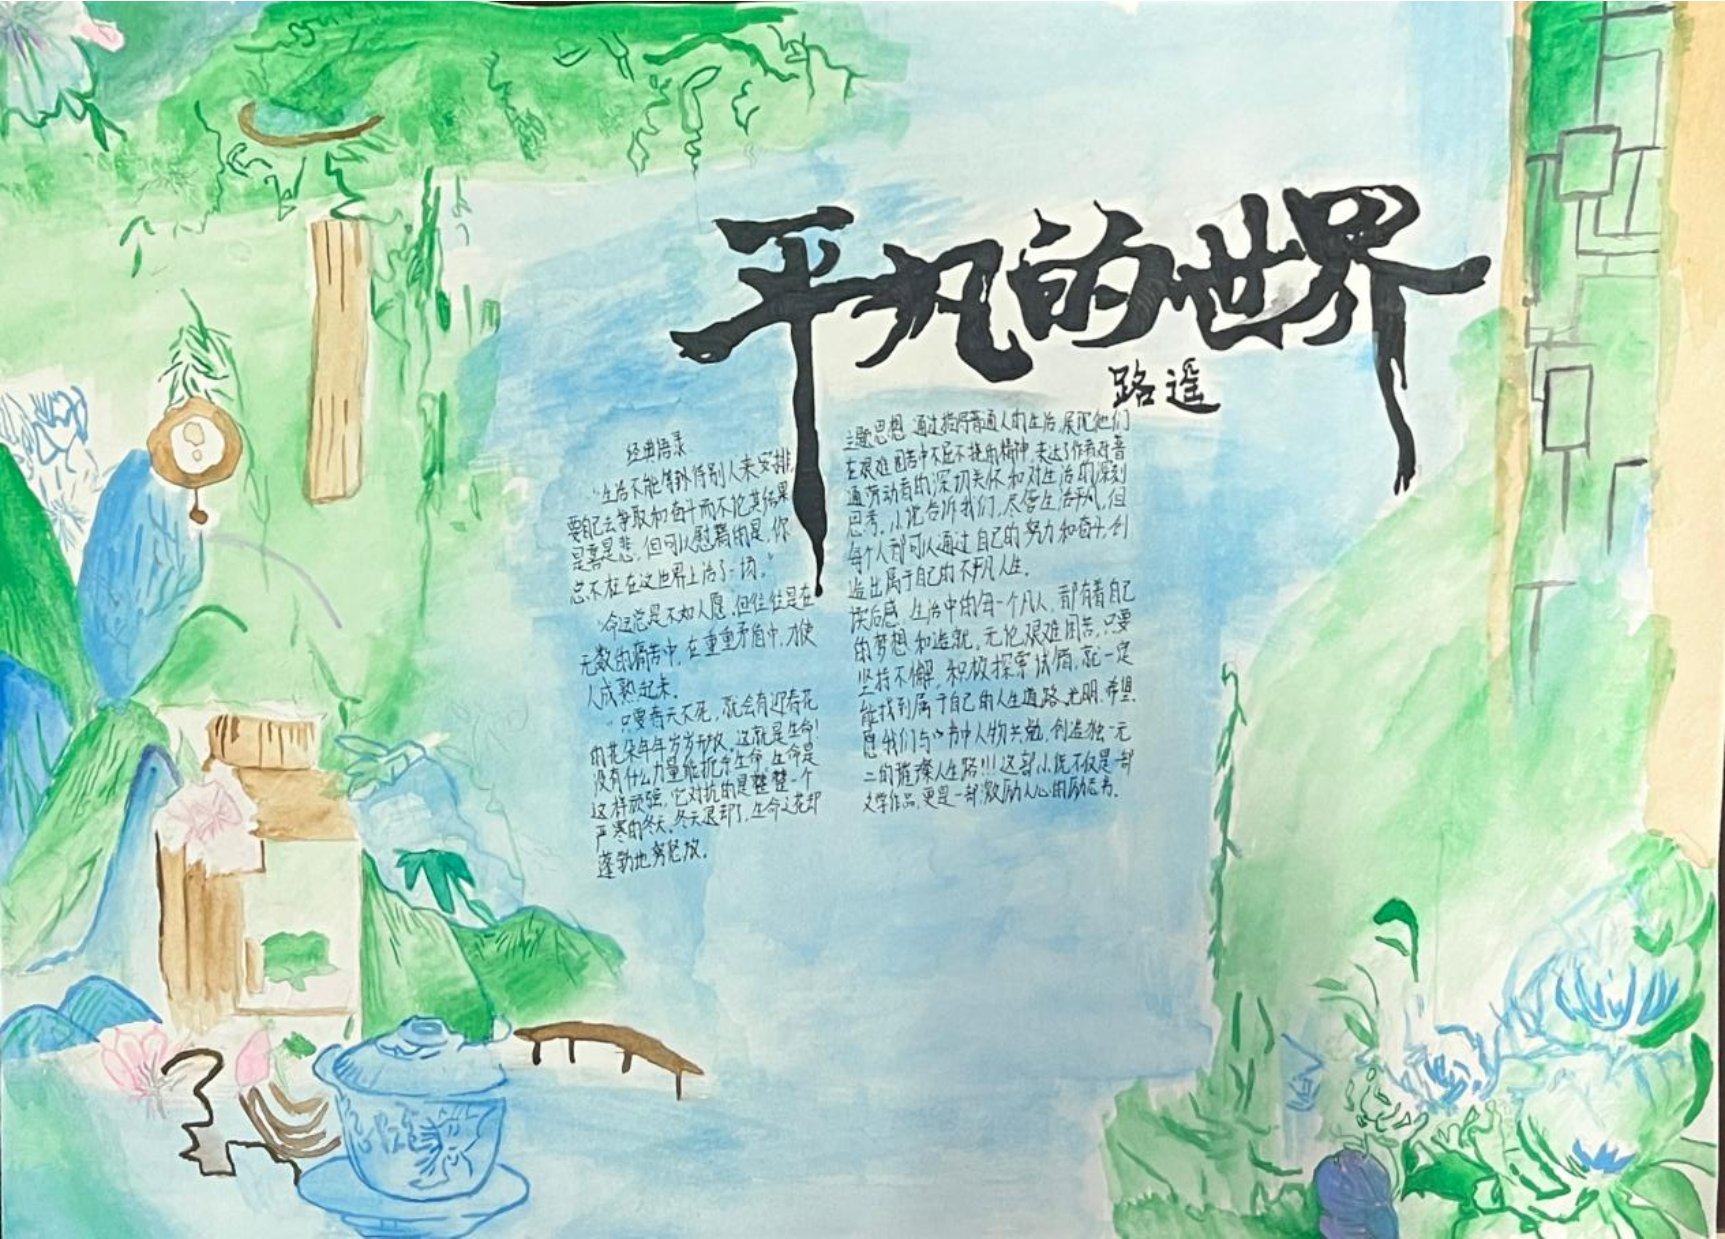 平凡的世界
路遥
经典语录
“生活不能等待别人来安排,
要自己去争取和奋斗而不论其结果
是喜是悲,但可以慰藉的是,你
总不枉在这世界上活了一场。”
“命运总是不如人愿,但往往是在
无数的痛苦中,在重重矛盾中,才使
人成熟起来。
“只要春天不死,就会有迎春花
的花朵年年岁岁开放,这就是生命!
没有什么力量能扼杀生命,生命是
这样顽强,它对抗的是整整一个
严寒的冬天。冬天退却了,生命之花却
蓬勃地怒放。
主题思想 通过描写普通人的生活,展现他们
在艰难困苦中不屈不挠的精神,表达了作者对普
通劳动者的深切关怀和对生活的深刻
思考,小说告诉我们,尽管生活平凡,但
每个人都可以通过自己的努力和奋斗,创
造出属于自己的不平凡人生。
读后感,生活中的每一个凡人,都有着自己
的梦想和造就,无论艰难困苦,只要
坚持不懈,积极探索试错,就一定
能找到属于自己的人生道路,光明,希望,
愿我们与书中人物共勉,创造独一无
二的璀璨人生路!!!这部小说不仅是一部
文学作品,更是一部激励人心的励志书。